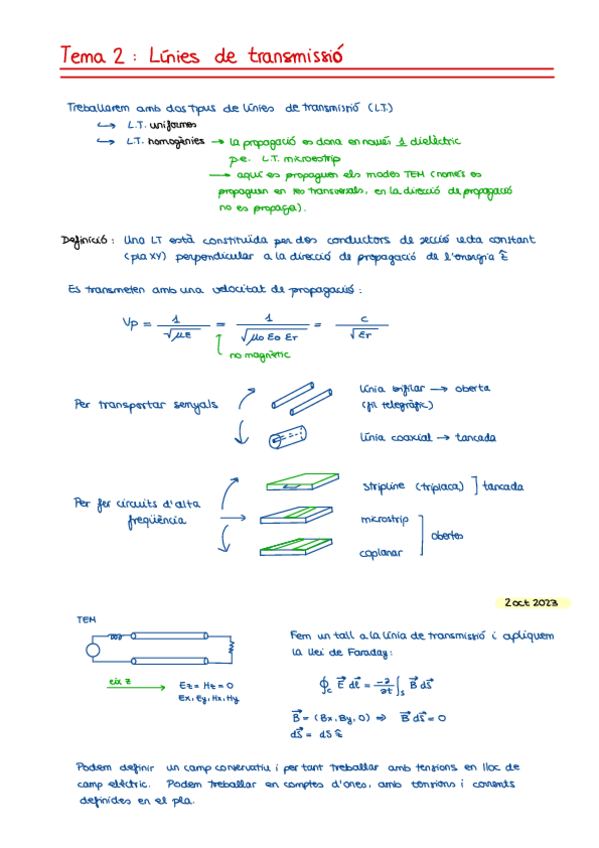 Tema 2 : Línies de transmissió
Treballarem amb dos tipus de línies de transmisió (L.T.)
↪ L.T. uniformes
↪ L.T. homogènies → la propagació es dona en només 1 dielèctric
p.e. L.T. microstrip
→ aquí es propaguen els modes TEM (només es
propaguen en les transversals, en la direcció de propagació
no es propaga).
Definició : Una LT està constituïda per dos conductors de secció recta constant
(pla XY) perpendicular a la direcció de propagació de l'energia Ê
Es transmeten amb una velocitat de propagació :
Vp = 1/√με = 1/√μ0 ε0 εr = c/√εr
no magnètic
Per transportar senyals
línia bifilar → oberta
(fil telegràfic)
línia coaxial → tancada
Per fer circuits d'alta
freqüència
stripline (triplaca) ] tancada
microstrip
coplanar
obertes
2 oct 2023
TEM
eix z
Ez = Hz = 0
Ex, Ey, Hx, Hy
Fem un tall a la línia de transmissió i apliquem
la llei de Faraday:
∮c E⃗ dℓ⃗ = -∂/∂t ∫s B⃗ dS⃗
B⃗ = (Bx, By, 0) ⇒ B⃗ dS⃗ = 0
dS⃗ = dS ẑ
Podem definir un camp conservatiu i per tant treballar amb tensions en lloc de
camp elèctric. Podem treballar en comptes d'ones, amb tensions i corrents
definides en el pla.